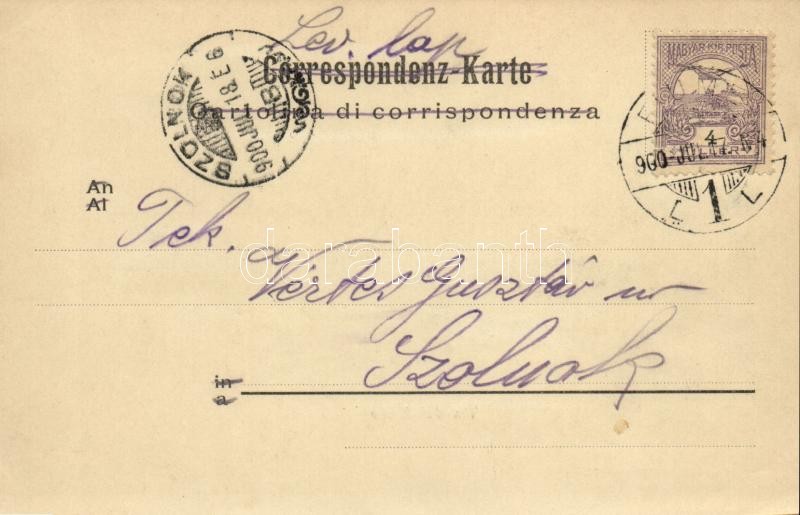 Lev. lap
Correspondenz-Karte
Cartolina di corrispondenza
MAGYAR KIR. POSTA
4
900 JUL. 17.
1
SZOLNOK
900 JUL 18
An
Al
Tek.
Vértes Gusztáv úr
Szolnok
in
a
darabanth